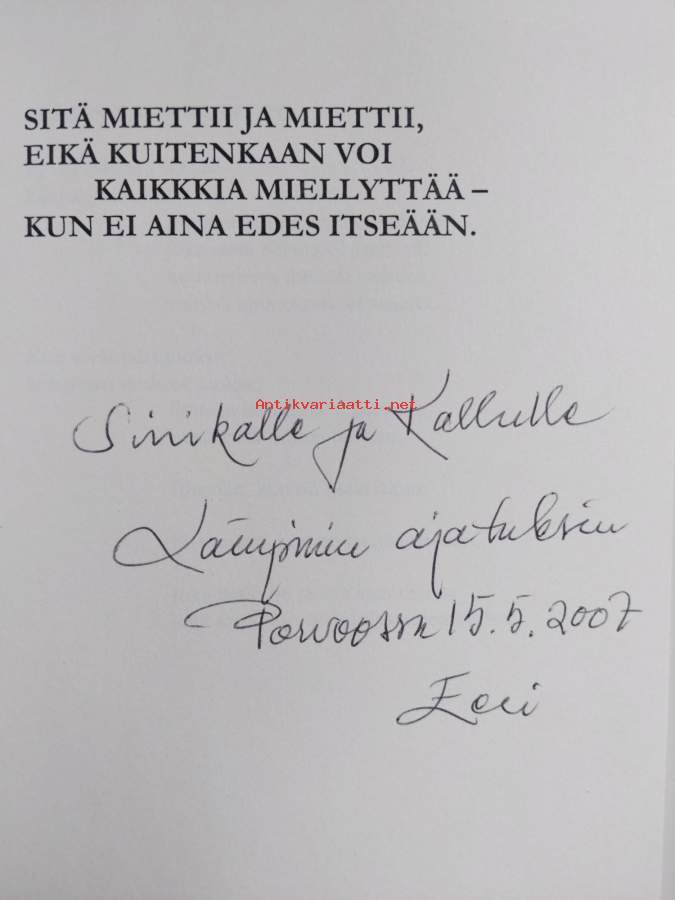 SITÄ MIETTII JA MIETTII,
EIKÄ KUITENKAAN VOI
KAIKKKIA MIELLYTTÄÄ –
KUN EI AINA EDES ITSEÄÄN.
Antikvariaatti.net
Sinikalle ja Kallulle
Lämpimin ajatuksin
Porvoossa 15.5.2007